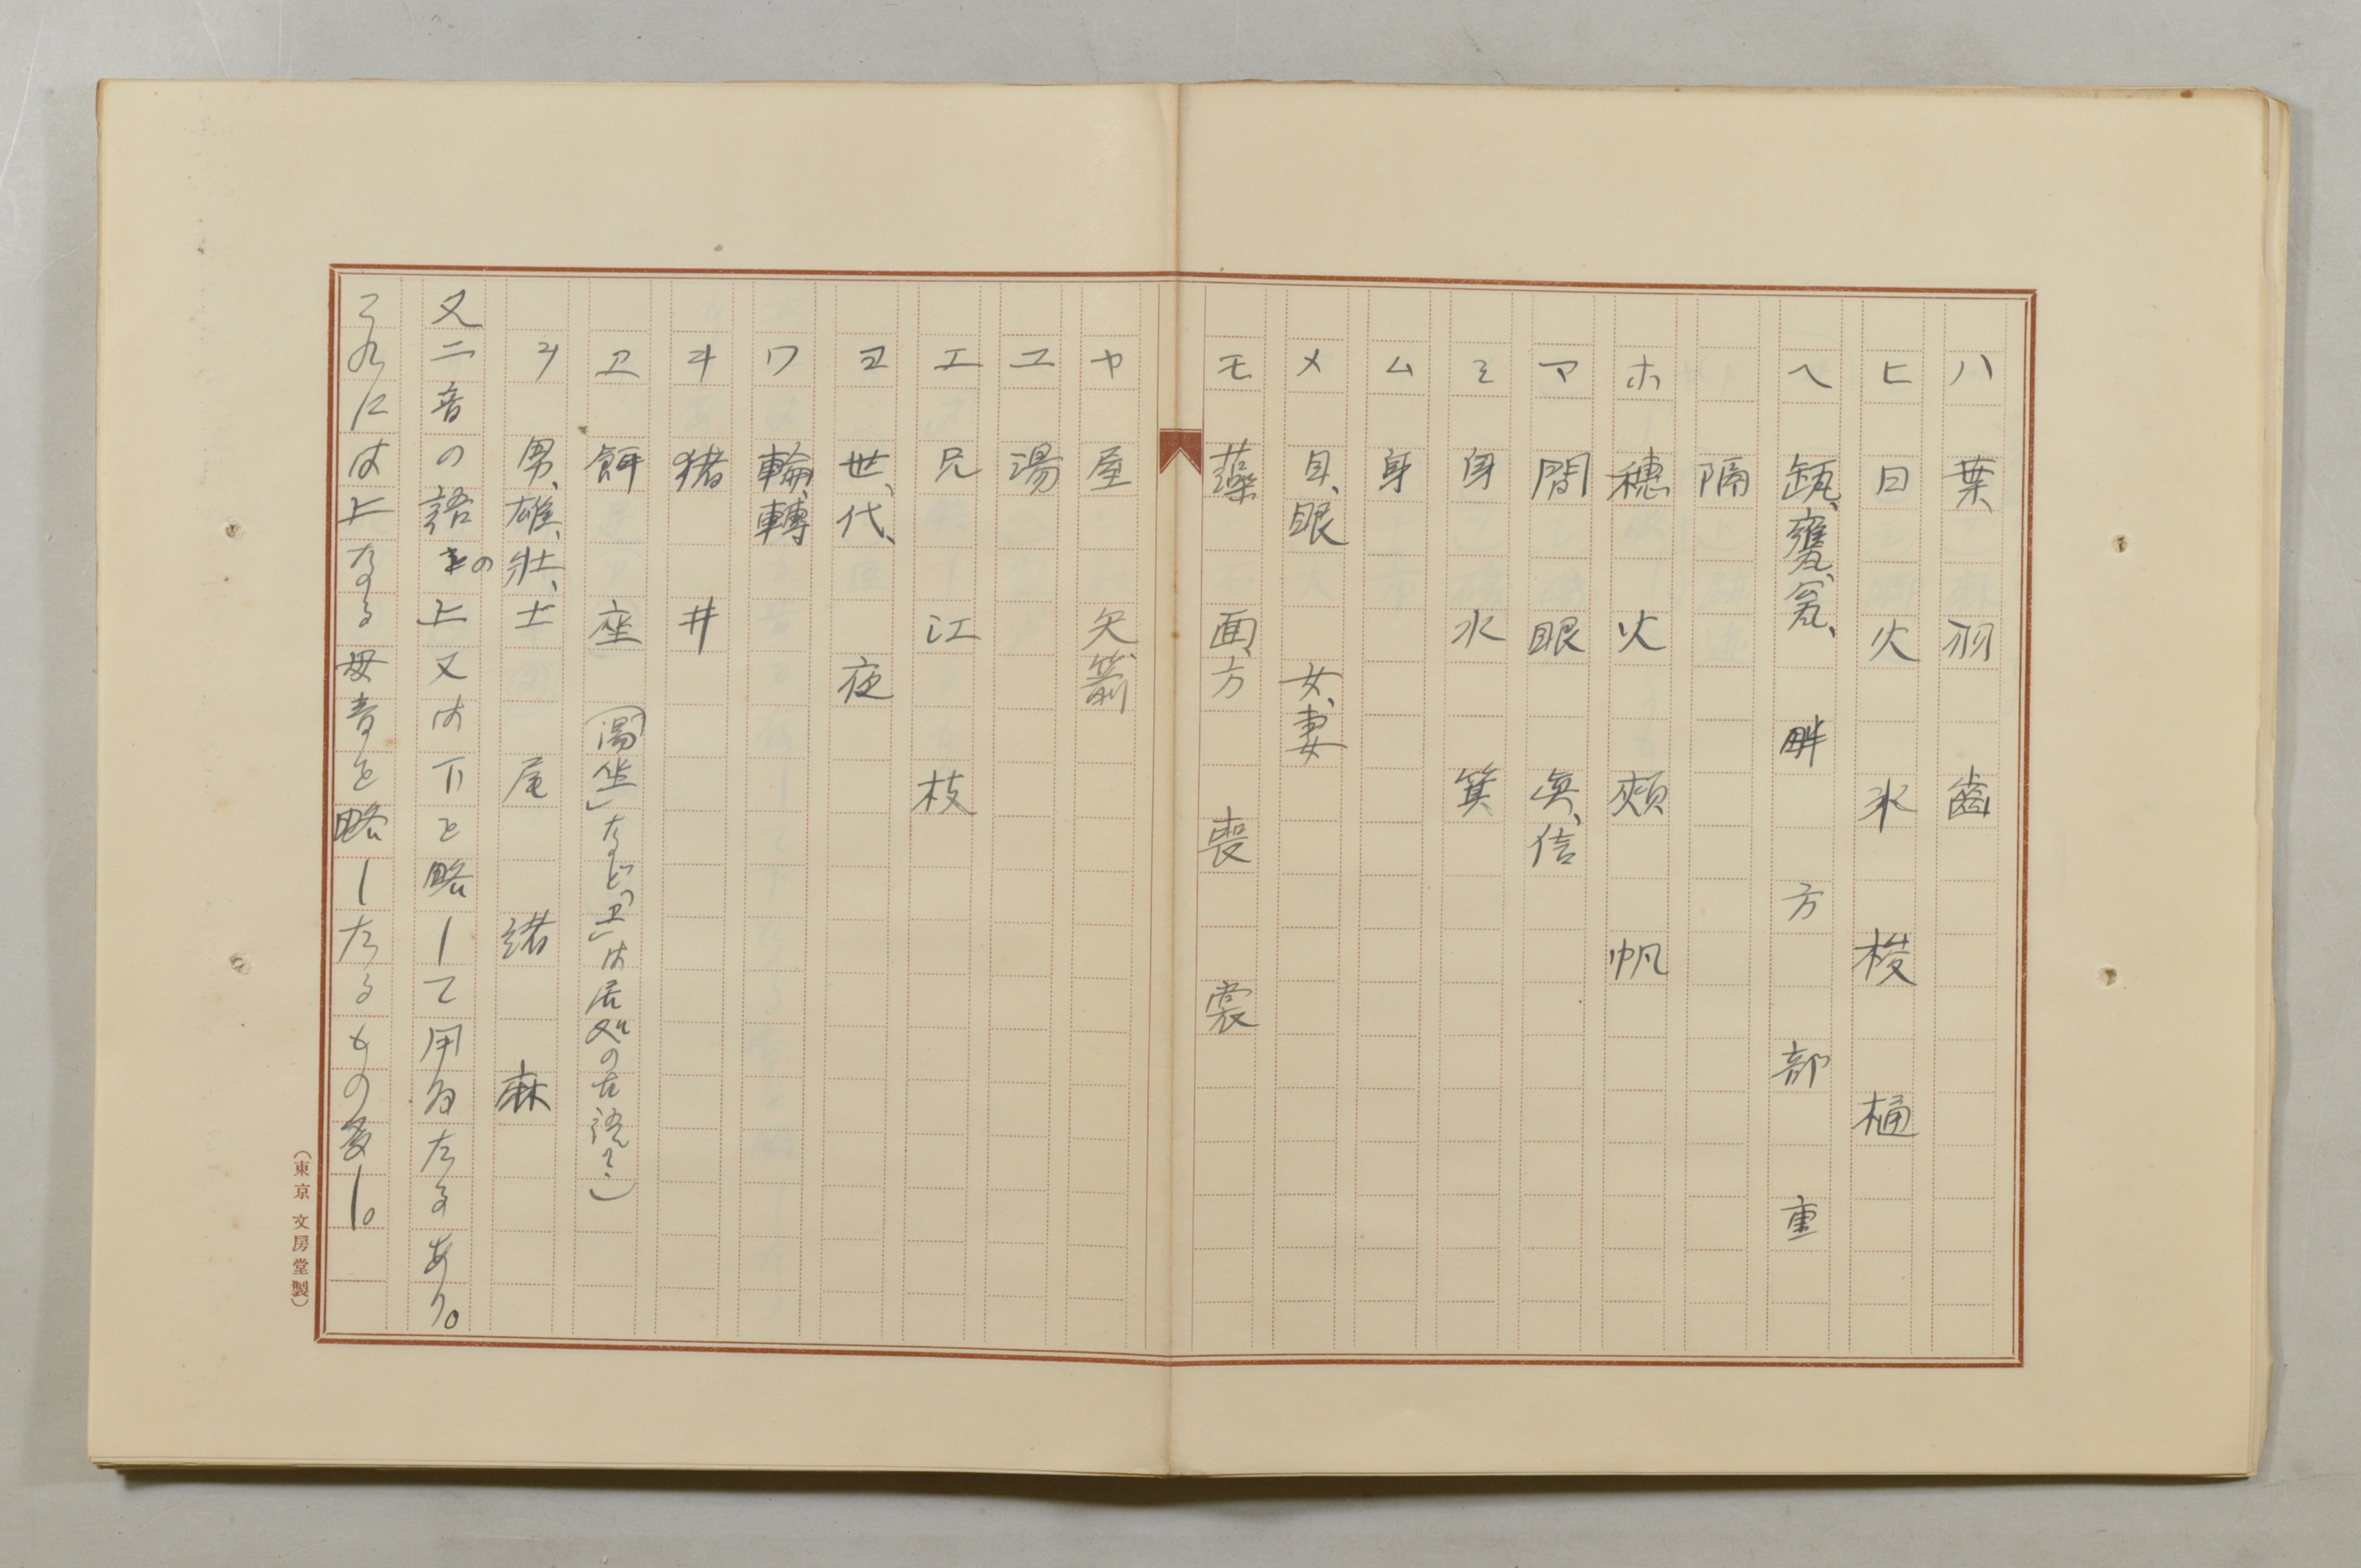 ハ 葉 羽 齒
ヒ 日 火 氷 梭 樋
ヘ 瓿、甕、瓮、 畔 方 部 重
隔
ホ 穗 火 頰 帆
マ 間 眼 眞、信
ミ 身 水 箕
ム 身
メ 目、眼 女、妻
モ 藻 面、方 喪 裳
ヤ 屋 矢、箭
ユ 湯
エ 兄 江 枝
ヨ 世、代、 夜
ワ 輪、轉
ヰ 猪 井
ヱ 餌 座 (「圓坐」など、「ヱ」は居処の古語か)
ヲ 男、雄、壯、士 尾 緒 麻
又二音の語の上又は下を略して用ゐたるあり。
これには上なる母音を略したるもの多し。
(東京 文房堂製)